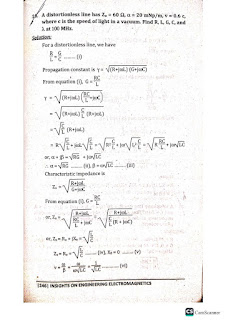 A distortionless line has Z₀ = 60 Ω, α = 20 mNp/m, v = 0.6 c,
where c is the speed of light in a vacuum. Find R, L, G, C, and
λ at 100 MHz.
Solution:
For a distortionless line, we have
R/L = G/C ......... (i)
Propagation constant is γ = √((R+jωL)(G+jωC))
From equation (i), G = RC/L
γ = √((R+jωL)(RC/L + jωC))
= √((R+jωL) C/L (R+jωL))
= √(C/L) (R+jωL)
= R√(C/L) + jωL√(C/L) = √(R² C/L) + jω√(L² C/L) = √(R RC/L) + jω√LC
or, α + jβ = √RG + jω√LC
∴ α = √RG ......... (ii), β = ω√LC ......... (iii)
Characteristic impedance is
Z₀ = √((R+jωL)/(G+jωC))
From equation (i), G = RC/L
or, Z₀ = √((R+jωL)/(RC/L + jωC)) = √((R+jωL)/(C/L (R + jωL)))
or, Z₀ = R₀ + jX₀ = √(L/C)
Z₀ = R₀ = √(L/C) ......... (iv), X₀ = 0 ......... (v)
v = ω/β = ω/(ω√LC) = 1/√LC ......... (vi)
INSIGHTS ON ENGINEERING ELECTROMAGNETICS
CS CamScanner